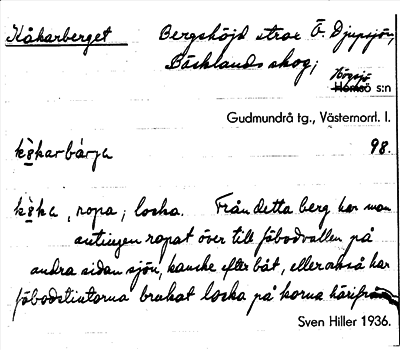 Kåkarberget Bergshöjd strax Ö. Djupsjön,
Bäcklands skog;
Högsjö
Hemsö s:n
Gudmundrå tg., Västernorrl. l.
98.
kò̤karbärja
kò̤ka, ropa; locka. Från detta berg har man
antingen ropat över till fäbodvallen på
andra sidan sjön, kanske efter båt, eller också har
fäbodstintorna brukat locka på korna härifrån
Sven Hiller 1936.